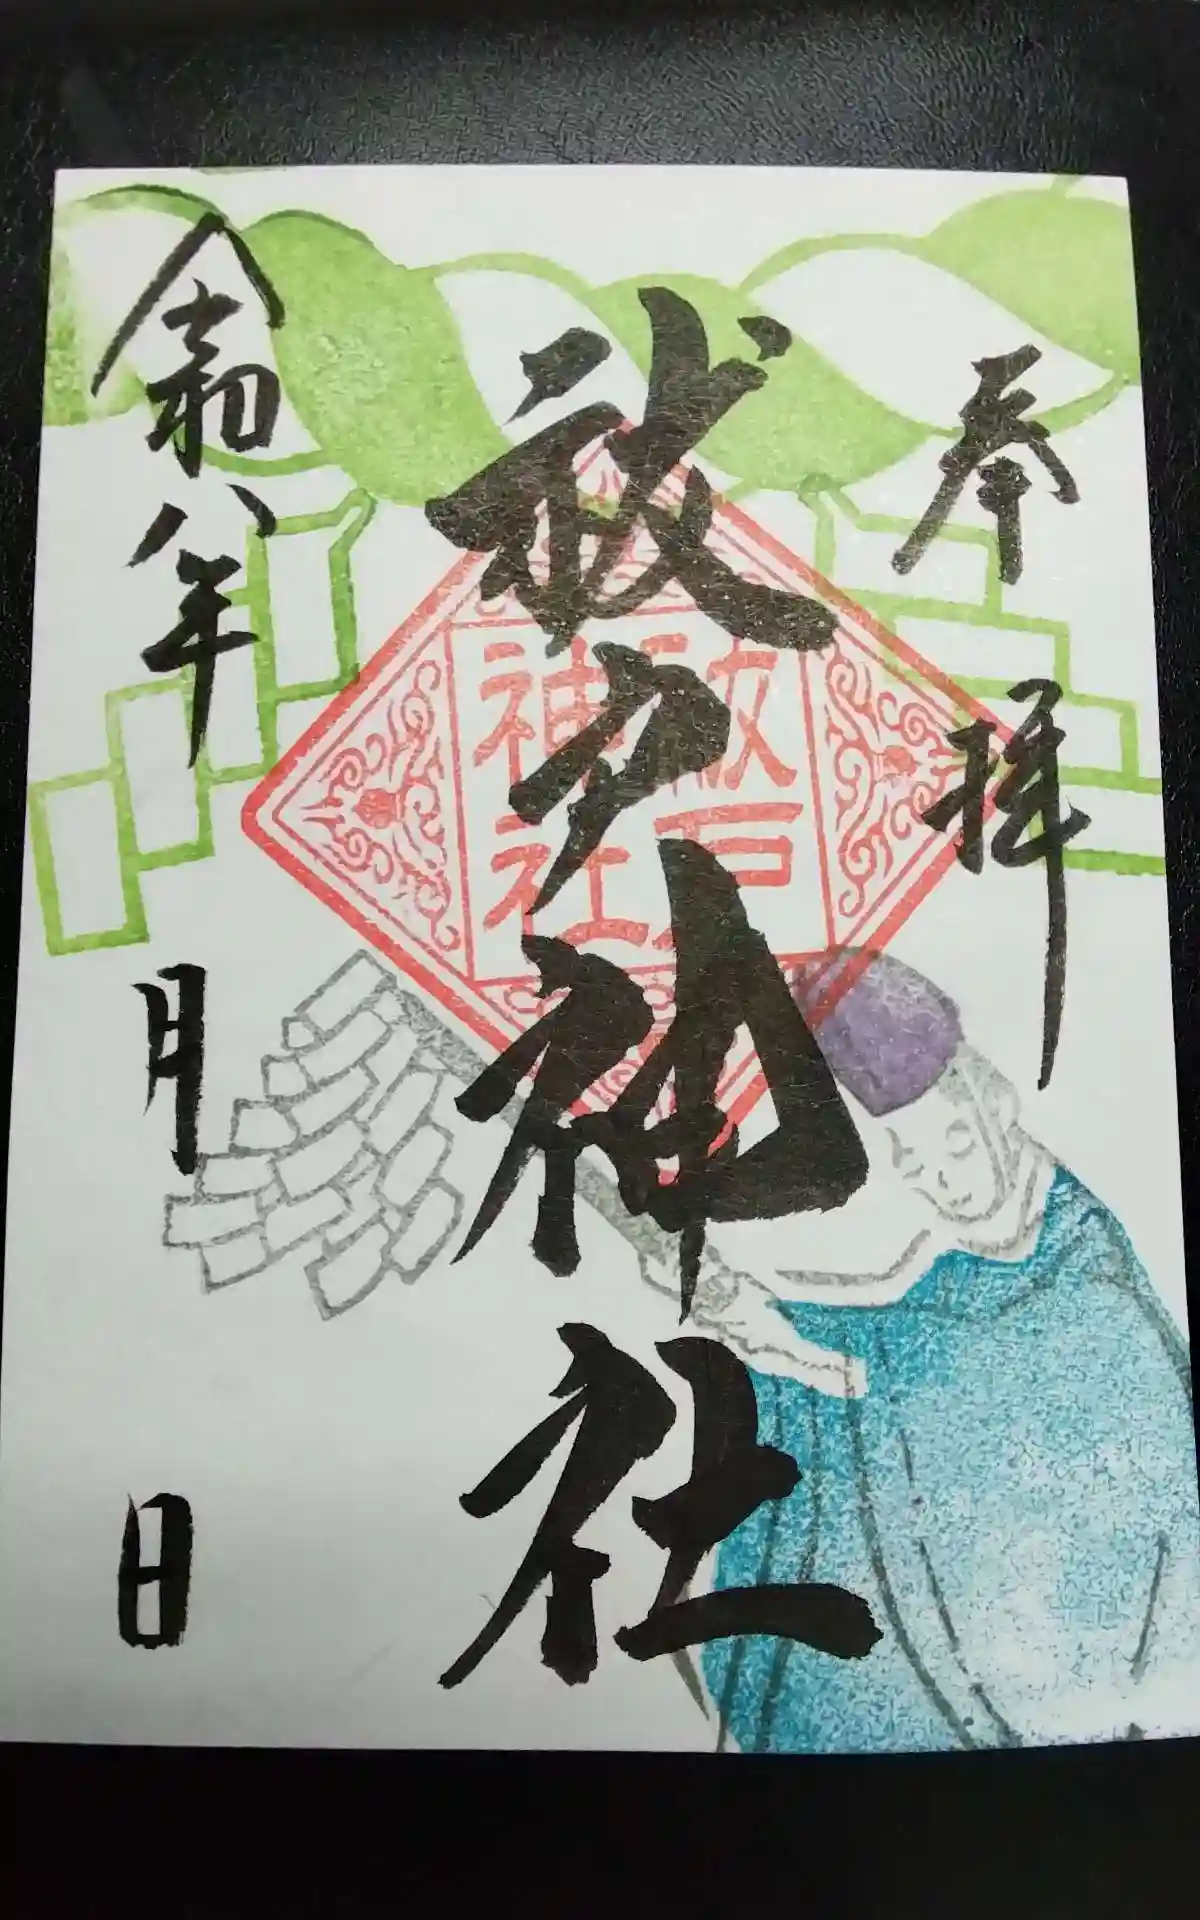 奉拝
祓戸神社
祓戸
神社
令和八年 月 日